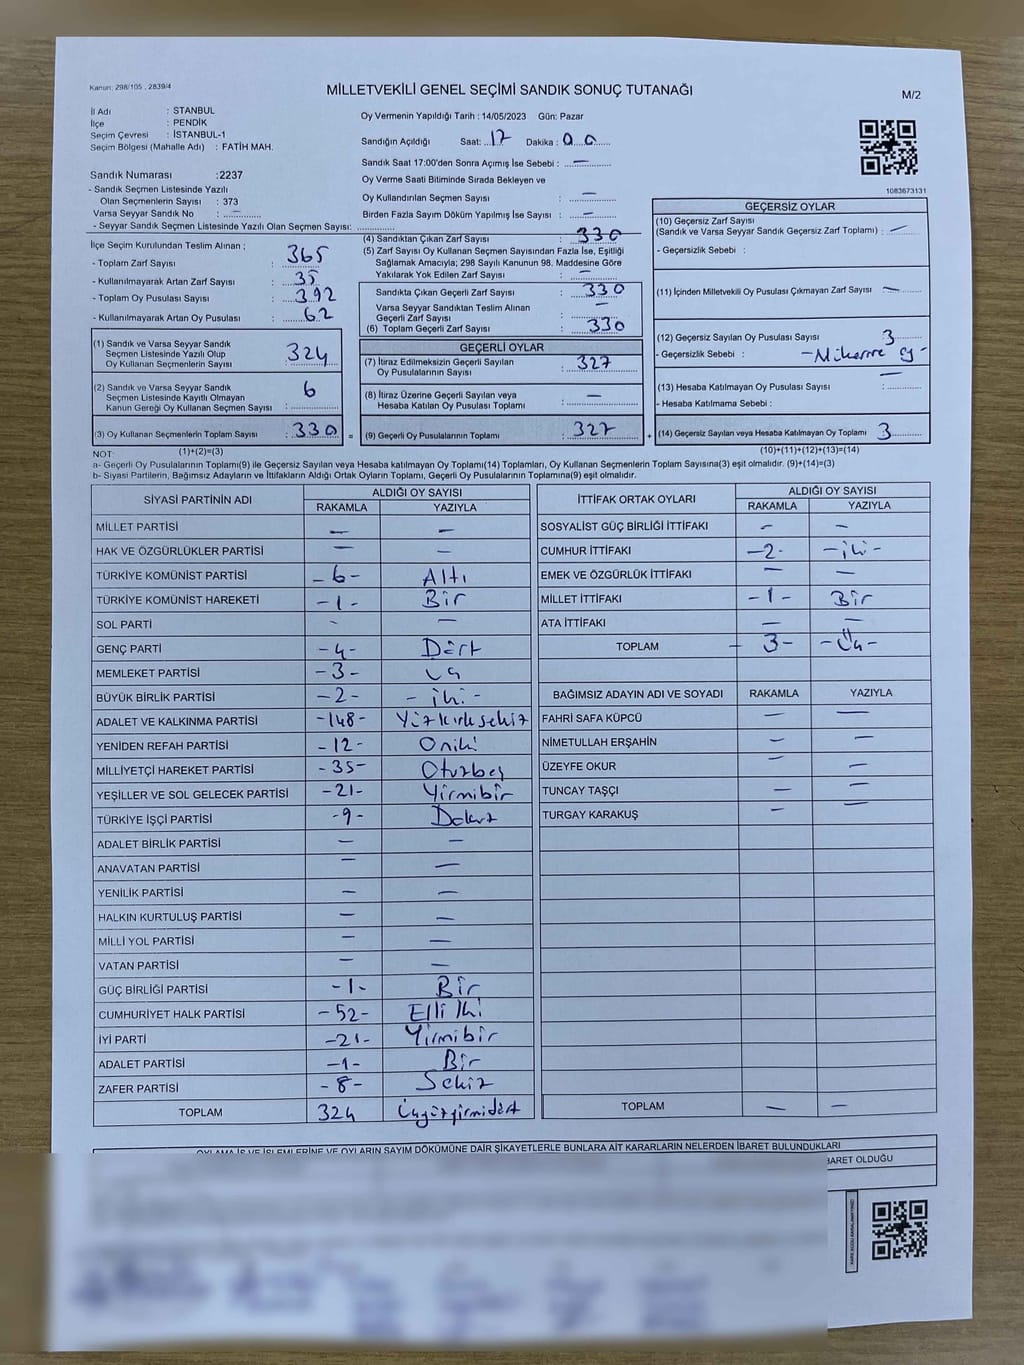 Kanun: 298/105 , 2839/4
MİLLETVEKİLİ GENEL SEÇİMİ SANDIK SONUÇ TUTANAĞI
M/2
İl Adı : STANBUL
İlçe : PENDİK
Seçim Çevresi : İSTANBUL-1
Seçim Bölgesi (Mahalle Adı) : FATİH MAH.
Sandık Numarası :2237
- Sandık Seçmen Listesinde Yazılı
Olan Seçmenlerin Sayısı : 373
Varsa Seyyar Sandık No : –
- Seyyar Sandık Seçmen Listesinde Yazılı Olan Seçmen Sayısı:
Oy Vermenin Yapıldığı Tarih : 14/05/2023 Gün: Pazar
Sandığın Açıldığı Saat: 17 Dakika : 00
Sandık Saat 17:00'den Sonra Açımış İse Sebebi : —
Oy Verme Saati Bitiminde Sırada Bekleyen ve
Oy Kullandırılan Seçmen Sayısı : —
Birden Fazla Sayım Döküm Yapılmış İse Sayısı : —
1083673131
İlçe Seçim Kurulundan Teslim Alınan ;
- Toplam Zarf Sayısı : 365
- Kullanılmayarak Artan Zarf Sayısı : 35
- Toplam Oy Pusulası Sayısı : 392
- Kullanılmayarak Artan Oy Pusulası : 62
(1) Sandık ve Varsa Seyyar Sandık
Seçmen Listesinde Yazılı Olup
Oy Kullanan Seçmenlerin Sayısı : 324
(2) Sandık ve Varsa Seyyar Sandık
Seçmen Listesinde Kayıtlı Olmayan
Kanun Gereği Oy Kullanan Seçmen Sayısı : 6
(3) Oy Kullanan Seçmenlerin Toplam Sayısı : 330
(4) Sandıktan Çıkan Zarf Sayısı : 330
(5) Zarf Sayısı Oy Kullanan Seçmen Sayısından Fazla İse, Eşitliği
Sağlamak Amacıyla; 298 Sayılı Kanunun 98. Maddesine Göre
Yakılarak Yok Edilen Zarf Sayısı : —
Sandıkta Çıkan Geçerli Zarf Sayısı : 330
Varsa Seyyar Sandıktan Teslim Alınan
Geçerli Zarf Sayısı : —
(6) Toplam Geçerli Zarf Sayısı : 330
GEÇERLİ OYLAR
(7) İtiraz Edilmeksizin Geçerli Sayılan
Oy Pusulalarının Sayısı : 327
(8) İtiraz Üzerine Geçerli Sayılan veya
Hesaba Katılan Oy Pusulası Toplamı : —
= (9) Geçerli Oy Pusulalarının Toplamı : 327
GEÇERSİZ OYLAR
(10) Geçersiz Zarf Sayısı
(Sandık ve Varsa Seyyar Sandık Geçersiz Zarf Toplamı) : —
- Geçersizlik Sebebi :
(11) İçinden Milletvekili Oy Pusulası Çıkmayan Zarf Sayısı : —
(12) Geçersiz Sayılan Oy Pusulası Sayısı : 3
- Geçersizlik Sebebi :
(13) Hesaba Katılmayan Oy Pusulası Sayısı : —
- Hesaba Katılmama Sebebi :
+ (14) Geçersiz Sayılan veya Hesaba Katılmayan Oy Toplamı : 3
NOT: (1)+(2)=(3) (10)+(11)+(12)+(13)=(14)
a- Geçerli Oy Pusulalarının Toplamı(9) ile Geçersiz Sayılan veya Hesaba katılmayan Oy Toplamı(14) Toplamları, Oy Kullanan Seçmenlerin Toplam Sayısına(3) eşit olmalıdır. (9)+(14)=(3)
b- Siyasi Partilerin, Bağımsız Adayların ve İttifakların Aldığı Ortak Oyların Toplamı, Geçerli Oy Pusulalarının Toplamına(9) eşit olmalıdır.
SİYASİ PARTİNİN ADI ALDIĞI OY SAYISI
RAKAMLA YAZIYLA
MİLLET PARTİSİ — —
HAK VE ÖZGÜRLÜKLER PARTİSİ — —
TÜRKİYE KOMÜNİST PARTİSİ -6- Altı
TÜRKİYE KOMÜNİST HAREKETİ -1- Bir
SOL PARTİ - —
GENÇ PARTİ -4- Dört
MEMLEKET PARTİSİ -3- Üç
BÜYÜK BİRLİK PARTİSİ -2- - iki -
ADALET VE KALKINMA PARTİSİ -148- Yüzkırksekiz
YENİDEN REFAH PARTİSİ -12- Oniki
MİLLİYETÇİ HAREKET PARTİSİ -35- Oturbeş
YEŞİLLER VE SOL GELECEK PARTİSİ -21- Yirmibir
TÜRKİYE İŞÇİ PARTİSİ -9- Dokuz
ADALET BİRLİK PARTİSİ — —
ANAVATAN PARTİSİ — —
YENİLİK PARTİSİ — —
HALKIN KURTULUŞ PARTİSİ — —
MİLLİ YOL PARTİSİ — —
VATAN PARTİSİ — —
GÜÇ BİRLİĞİ PARTİSİ -1- Bir
CUMHURİYET HALK PARTİSİ -52- Elli İki
İYİ PARTİ -21- Yirmibir
ADALET PARTİSİ -1- Bir
ZAFER PARTİSİ -8- Sekiz
TOPLAM 324 Üçyüzyirmidört
İTTİFAK ORTAK OYLARI ALDIĞI OY SAYISI
RAKAMLA YAZIYLA
SOSYALİST GÜÇ BİRLİĞİ İTTİFAKI — —
CUMHUR İTTİFAKI -2- -iki-
EMEK VE ÖZGÜRLÜK İTTİFAKI — —
MİLLET İTTİFAKI -1- Bir
ATA İTTİFAKI — —
TOPLAM - 3- -Üç-
BAĞIMSIZ ADAYIN ADI VE SOYADI RAKAMLA YAZIYLA
FAHRİ SAFA KÜPCÜ — —
NİMETULLAH ERŞAHİN — —
ÜZEYFE OKUR — —
TUNCAY TAŞÇI — —
TURGAY KARAKUŞ — —
TOPLAM — —
OYLAMA İŞ VE İŞLEMLERİNE VE OYLARIN SAYIM DÖKÜMÜNE DAİR ŞİKAYETLERLE BUNLARA AİT KARARLARIN NELERDEN İBARET BULUNDUKLARI
BARET OLDUĞU